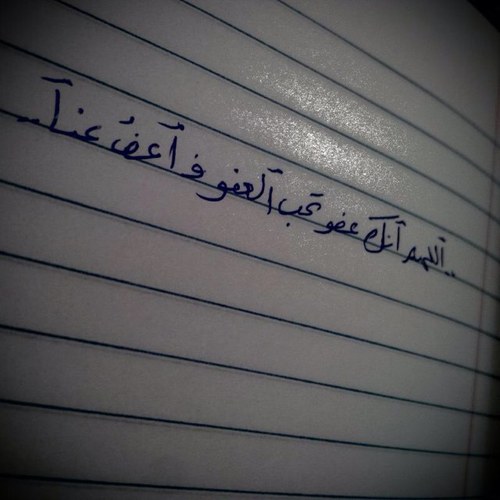 ..اللهم آنك عفو تحب آلعفو ف آعفُ عنــآ..